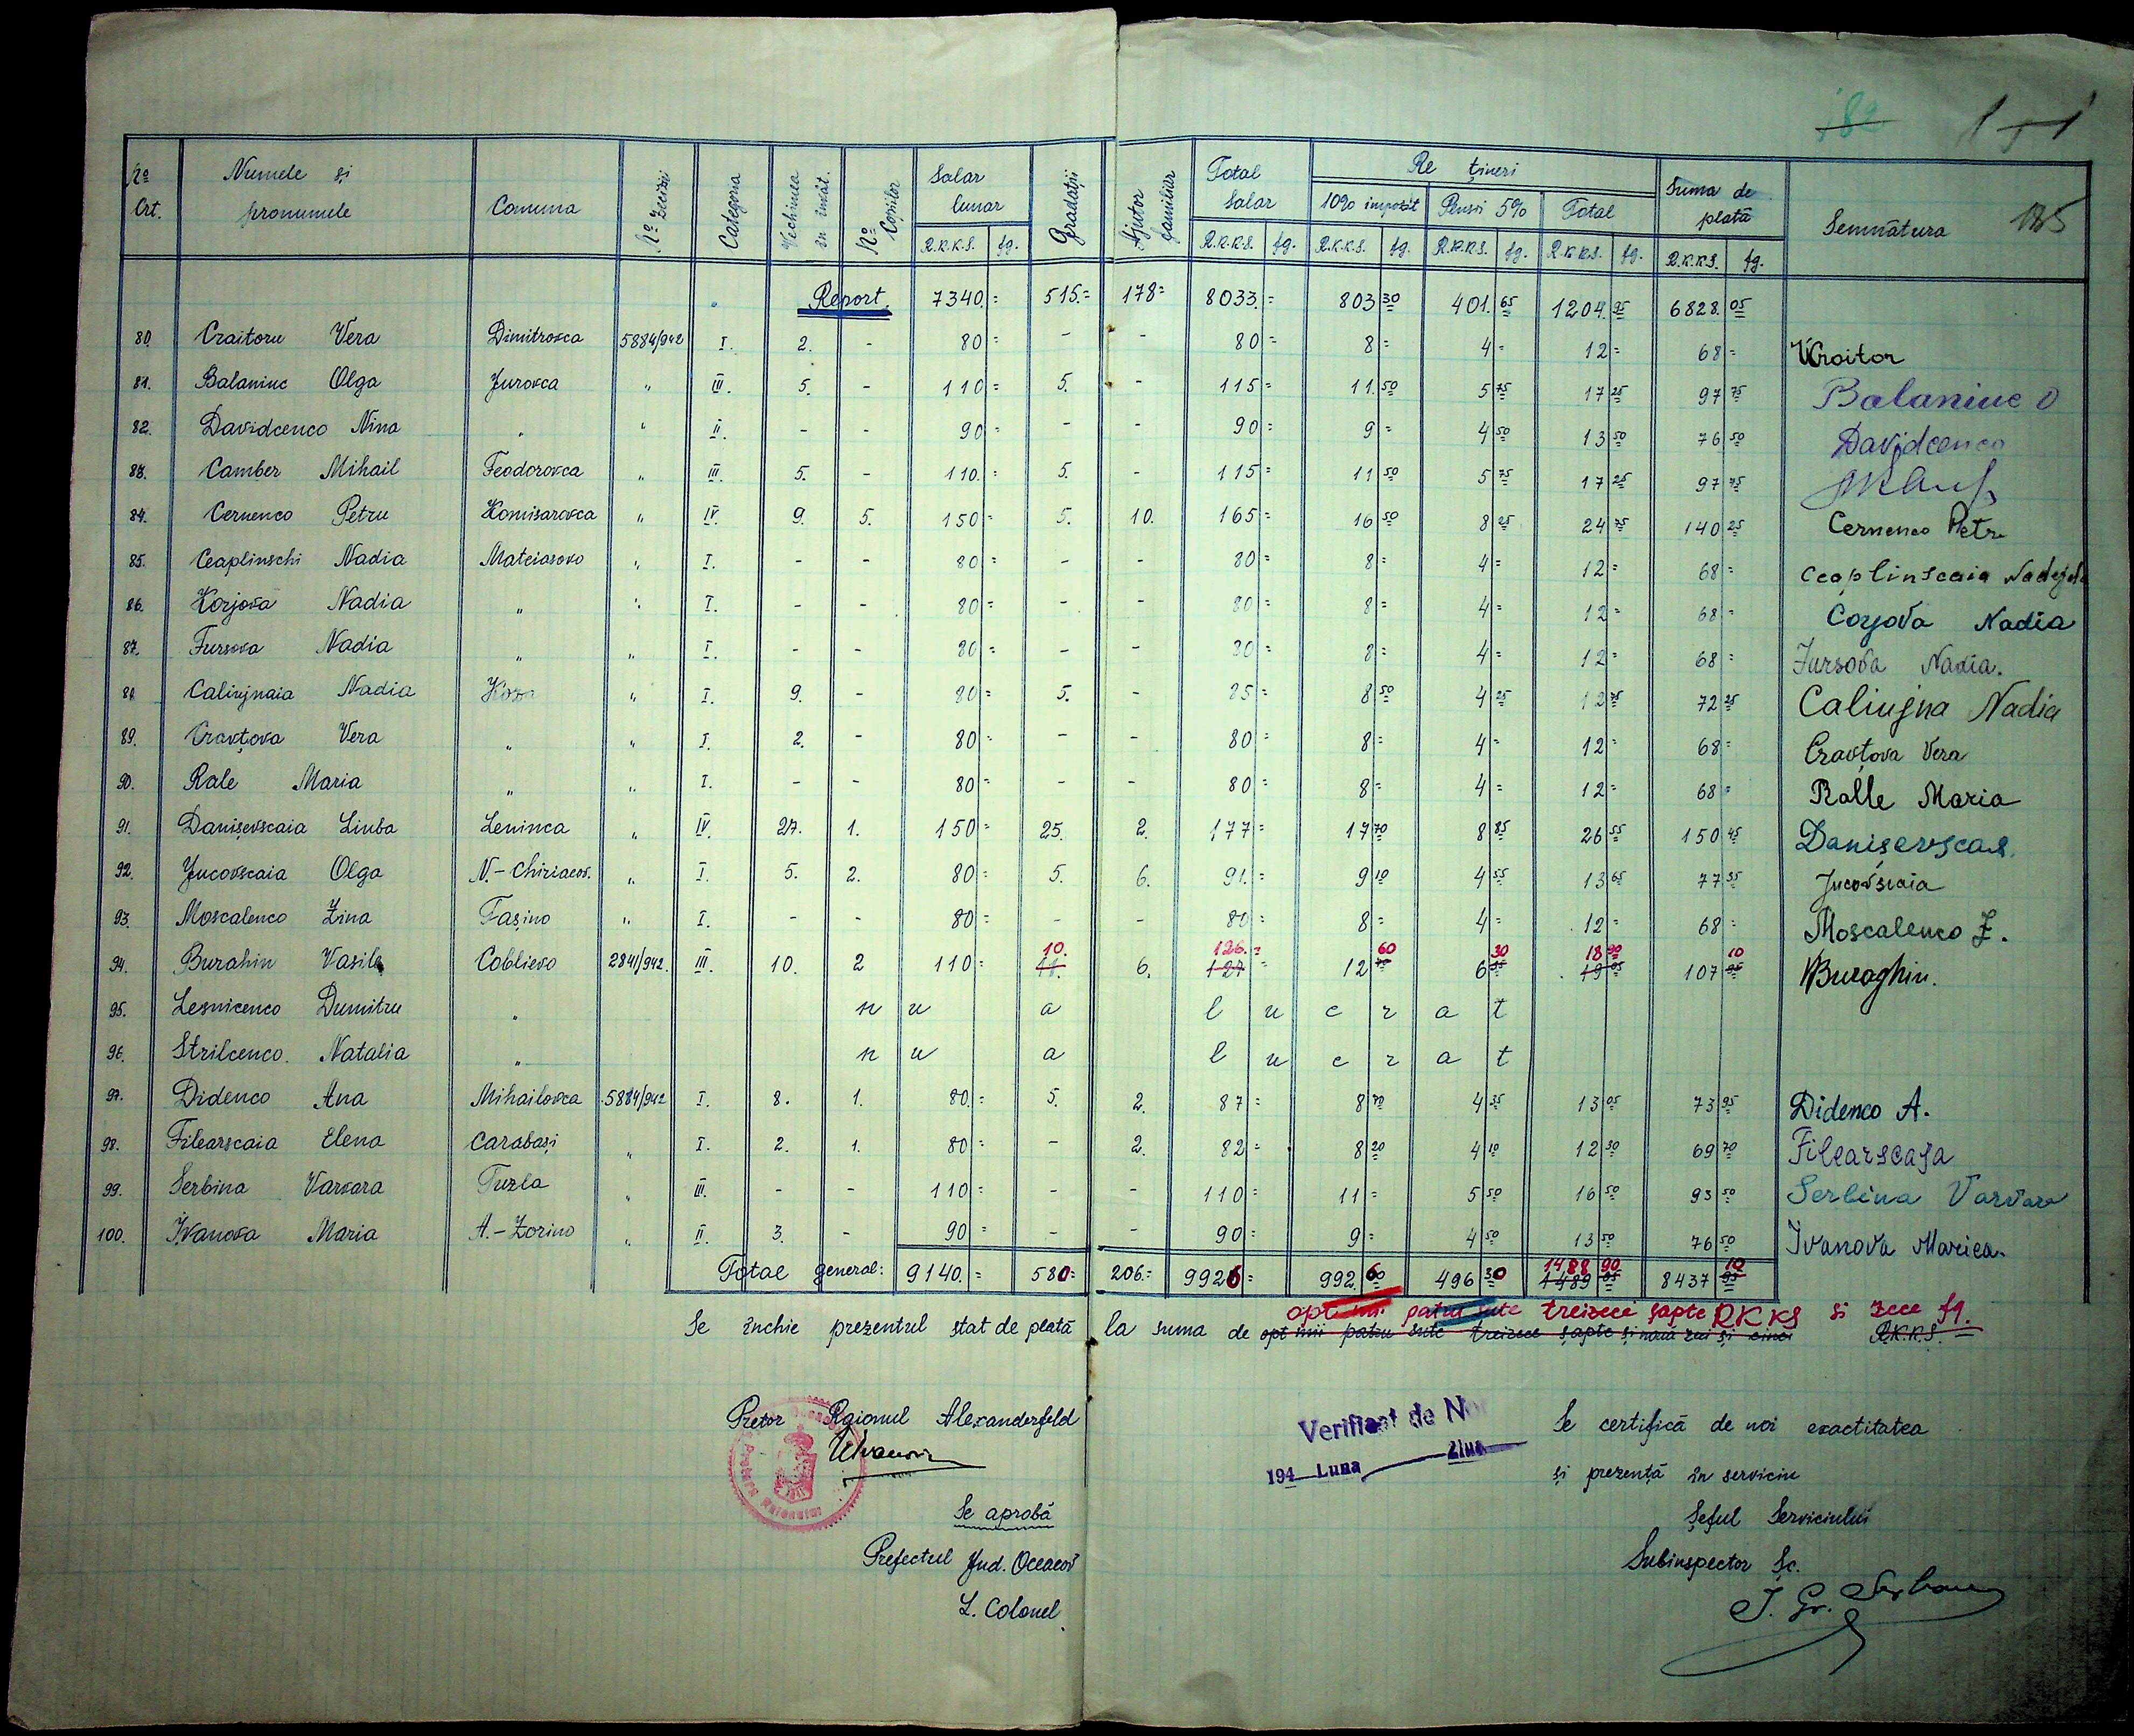 182
185
No Crt. Numele și pronumele Comuna No Deciziei Categoria Vechimea în învăt. No Copiilor Salar lunar R.K.K.S. fg. Gradații Ajutor familiar Total Salar R.K.K.S. fg. Rețineri 10% impozit R.K.K.S. fg. Pensii 5% R.K.K.S. fg. Total R.K.K.S. fg. Suma de plată R.K.K.S. fg. Semnătura
Report. 7340.= 515.= 178= 8033.= 803 30 401. 65 1204. 95 6828. 05
80. Craitoru Vera Dimitrovca 5884/942 I. 2. - 80= - - 80= 8= 4= 12= 68= VKroitor
81. Balaniuc Olga Jurovca " III. 5. - 110= 5. - 115= 11. 50 5 75 17 25 97 75 Balaniuc O
82. Davidcenco Nina " " II. - - 90= - - 90= 9= 4 50 13 50 76 50 Davidcenco
83. Camber Mihail Feodorovca " III. 5. - 110.= 5. - 115= 11 50 5 75 17 25 97 75
84. Cernenco Petru Komisarovca " IV. 9. 5. 150= 5. 10. 165= 16 50 8 25 24 75 140 25 Cernenco Petr
85. Ceaplinschi Nadia Mateiasovo " I. - - 80= - - 80= 8= 4= 12= 68= Ceaplinscaia Nadejda
86. Korjova Nadia " " I. - - 80= - - 80= 8= 4= 12= 68= Corjova Nadia
87. Fursova Nadia " " I. - - 80= - - 80= 8= 4= 12= 68= Fursova Nadia.
88. Caliujnaia Nadia Kosa " I. 9. - 80= 5. - 85= 8 50 4 25 12 75 72 25 Caliujna Nadia
89. Cravțova Vera " " I. 2. - 80= - - 80= 8= 4= 12= 68= Cravțova Vera
90. Rale Maria " " I. - - 80= - - 80= 8= 4= 12= 68= Ralle Maria
91. Danișevscaia Liuba Leninca " IV. 27. 1. 150= 25. 2. 177= 17 70 8 85 26 55 150 45 Danișevscas.
92. Jucovscaia Olga N.-Chiriacov. " I. 5. 2. 80= 5. 6. 91.= 9 10 4 55 13 65 77 35 Jucovscaia
93. Moscalenco Zina Tașino " I. - - 80= - - 80= 8= 4= 12= 68= Moscalenco Z.
10. 126.= 60 30 18 90 10
94. Burahin Vasile Coblievo 2841/942. III. 10. 2 110= 11. 6. 127= 12 70 6 35 19 05 107 95 VBuraghin.
95. Lesnicenco Dumitru " n u a l u c r a t
96. Strilcenco. Natalia " n u a l u c r a t
97. Didenco Ana Mihailovca 5884/942 I. 8. 1. 80.= 5. 2. 87= 8 70 4 35 13 05 73 95 Didenco A.
98. Filearscaia Elena Carabași " I. 2. 1. 80= - 2. 82= 8 20 4 10 12 30 69 70 Filearscaja
99. Serbina Varvara Tuzla " III. - - 110= - - 110= 11= 5 50 16 50 93 50 Serbina Varvara
100. Ivanova Maria A.-Zorino " II. 3. - 90= - - 90= 9= 4 50 13 50 76 50 Ivanova Mariea.
1488 90 10
Total general: 9140.= 580= 206.= 9926= 992. 60 496 30 1489 05 8437 95
opt mii patru sute treizeci șapte RKKS și zece fg.
Se închie prezentul stat de plată la suma de opt mii patru sute treizece șapte și nouă zeci și cinci R.K.K.S.
Pretor Raionul Alexanderfeld
Se aprobă
Prefectul Jud. Oceacov
L. Colonel.
Verificat de Noi
194 Luna Ziua
Se certifică de noi exactitatea
și prezență în serviciu
Șeful Serviciului
Subinspector Șc.